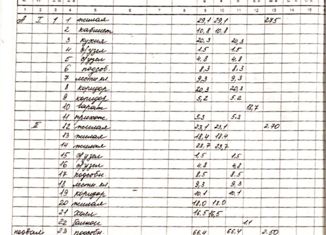 А I 1 1 жилая 29,1 29,1 2.85
2 кабинет 10.8 10.8
3 кухня 20.3 20.3
4 с/узел 1.5 1.5
5 с/узел 4.8 4.8
6 подсоб 8.3 8.3
7 лестн кл 9.3 9.3
8 коридор 20.3 20.3
9 коридор 5.2 5.2
10 гараж
11 прихож 5.3 5.3
II 12 жилая 23,1 23,1 2.70
13 жилая 18.4 18.4
14 жилая 23,7 23,7
15 с/узел 1.5 1.5
16 с/узел 4.8 4.8
17 подсобн 8.5 8.5
18 лестн кл 9.3 9.3
19 коридор 10.1 10.1
20 жилая 18.0 18.0
21 холл 16.5 16.5
22 балкон 1.1
подвал 23 подсобн 66.4 66.4 2.50